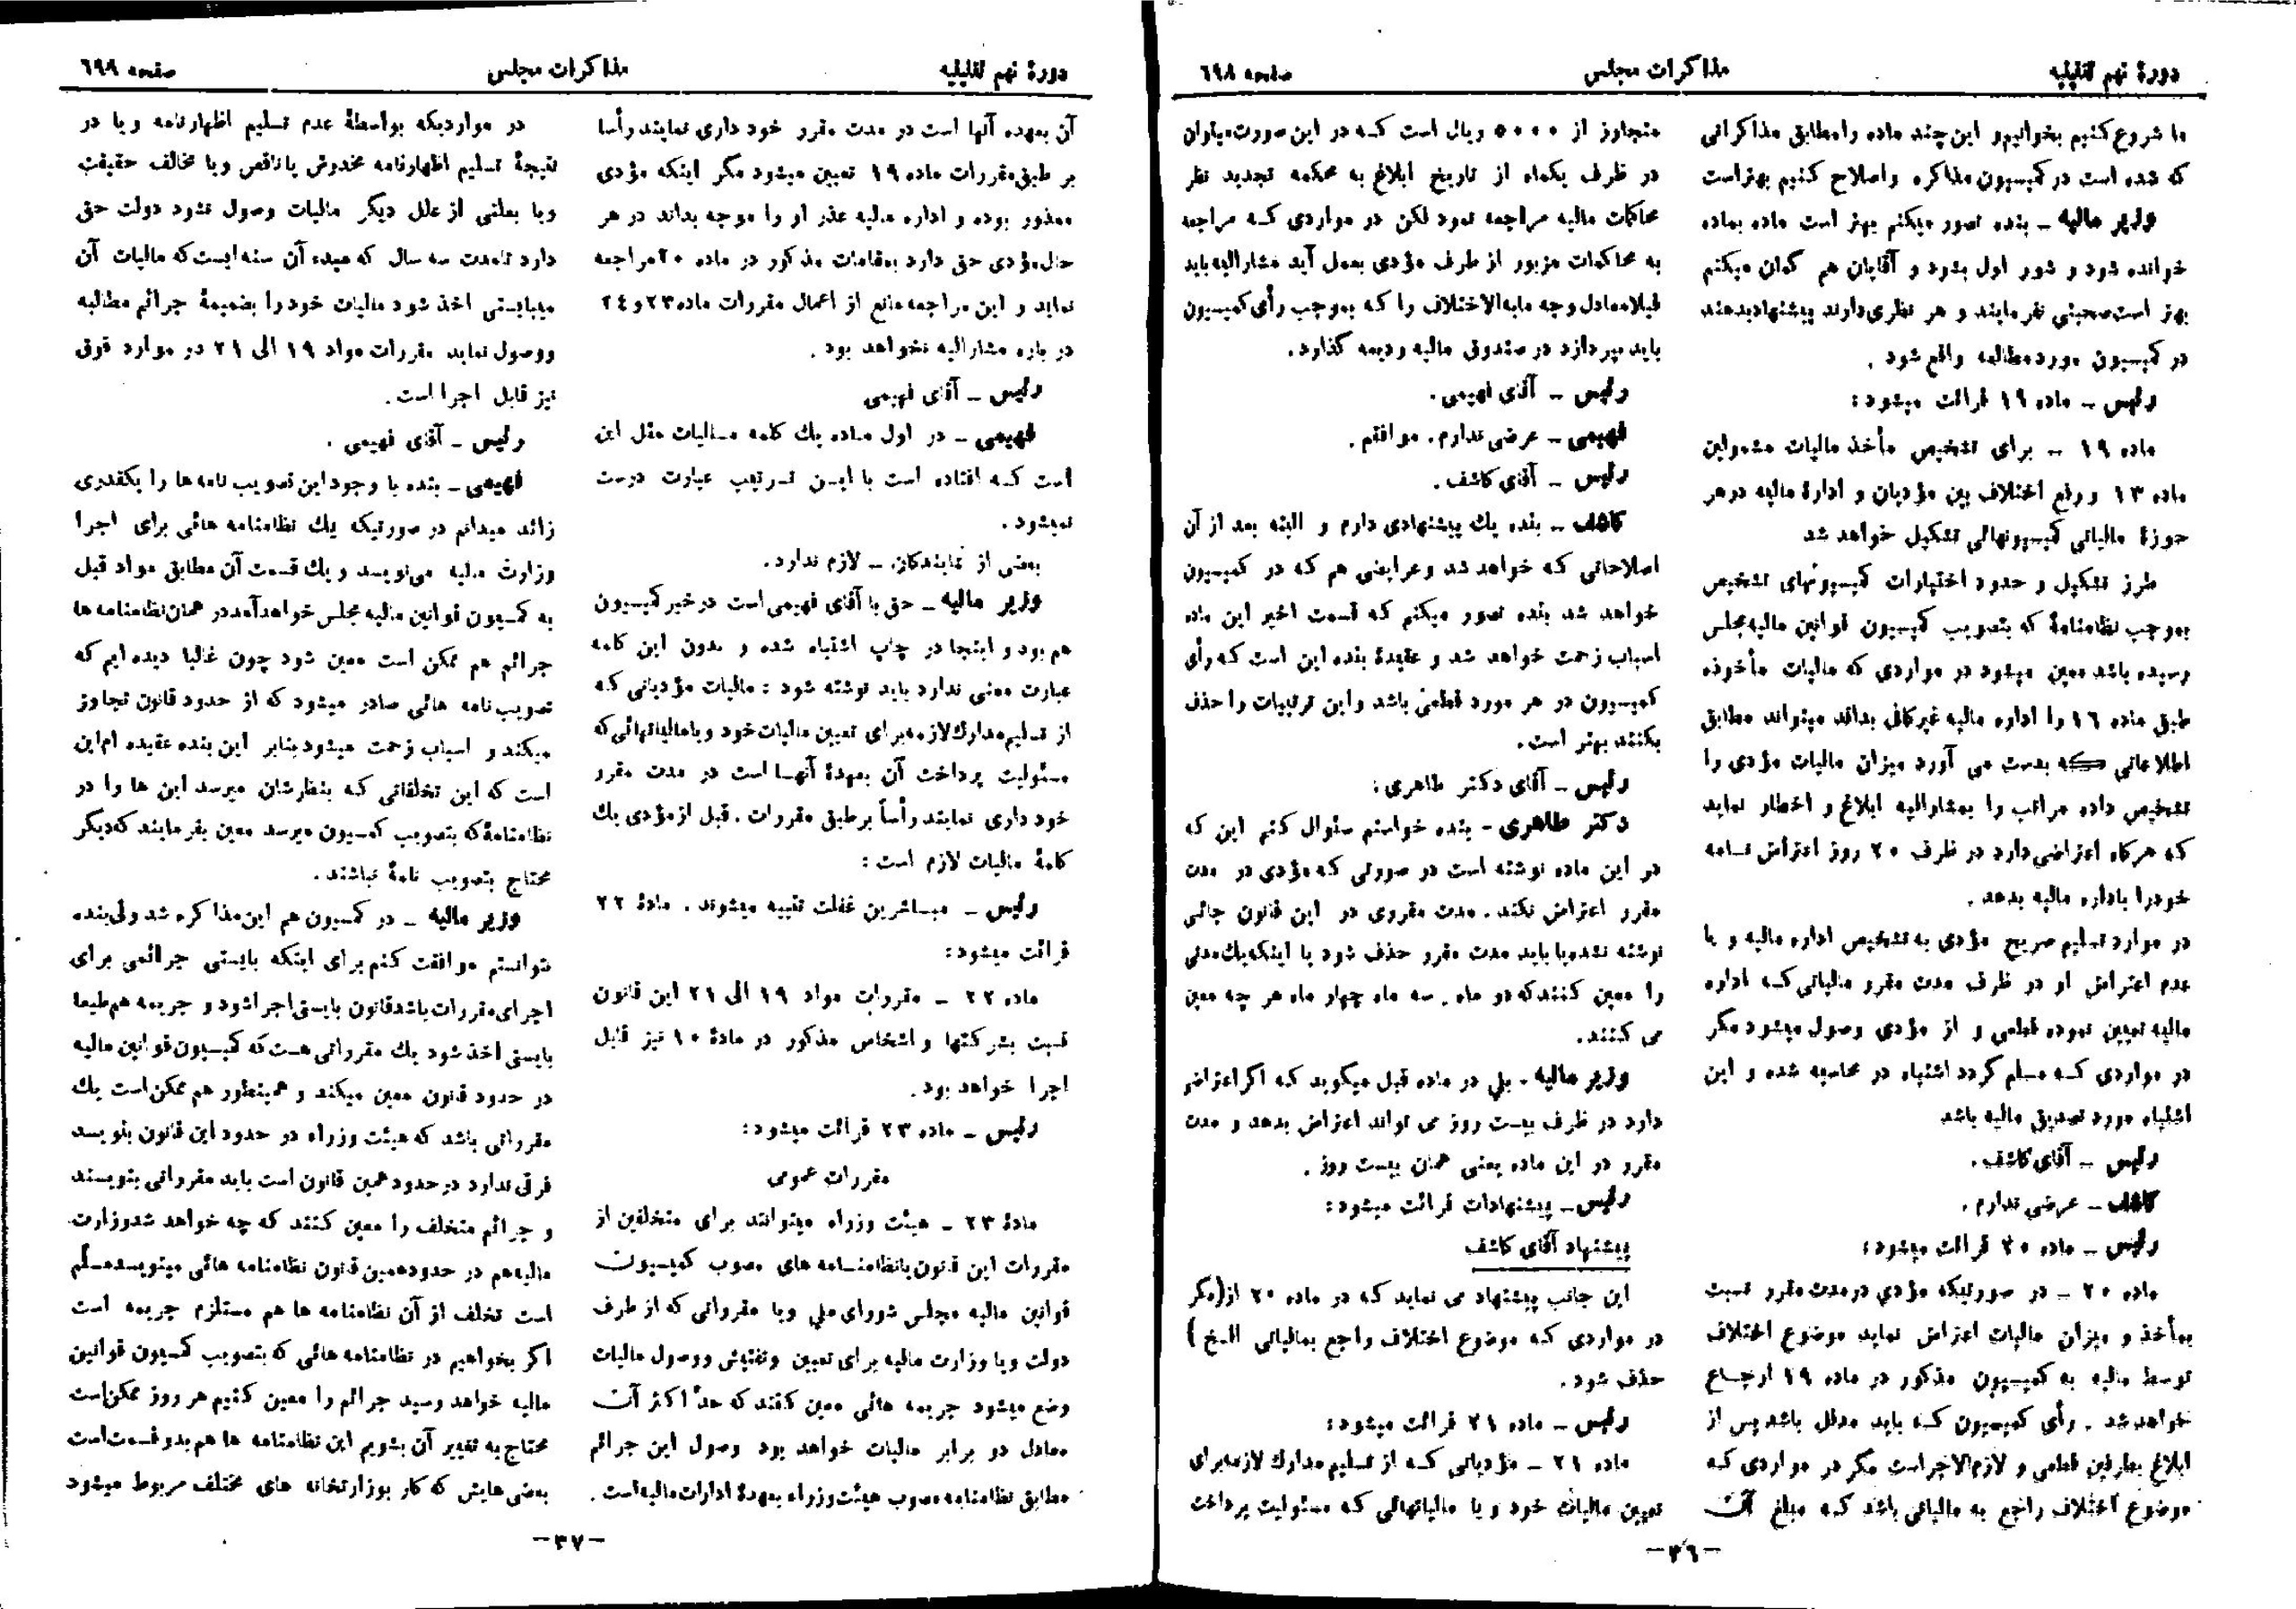 دورهٔ نهم تقنینیه
مذاکرات مجلس
صفحه ٦٩٨
ما شروع کنیم بخوانیم و این چند ماده را مطابق مذاکراتی
که شده است در کمیسیون مذاکره و اصلاح کنیم بهتر است
وزیر مالیه ـ بنده تصور میکنم بهتر است ماده بماده
خوانده شود و شور اول بشود و آقایان هم گمان میکنم
بهتر است صحبتی نفرمایند و هر نظری دارند پیشنهاد بدهند
در کمیسیون مورد مطالعه واقع شود .
رئیس ـ ماده ۱۹ قرائت میشود:
ماده ۱۹ ـ برای تشخیص مأخذ مالیات مشمولین
ماده ۱۳ و رفع اختلاف بین مؤدیان و ادارهٔ مالیه در هر
حوزهٔ مالیاتی کمیسیونهائی تشکیل خواهد شد
طرز تشکیل و حدود اختیارات کمیسیونهای تشخیص
بموجب نظامنامهٔ که بتصویب کمیسیون قوانین مالیه مجلس
رسیده باشد معین میشود در مواردی که مالیات مأخوذه
طبق ماده ۱٦ را اداره مالیه غیر کافی بداند میتواند مطابق
اطلاعاتی که بدست می آورد میزان مالیات مؤدی را
تشخیص داده مراتب را بمشارالیه ابلاغ و اخطار نماید
که هرگاه اعتراضی دارد در ظرف ۲۰ روز اعتراض نامه
خود را باداره مالیه بدهد .
در موارد تسلیم صریح مؤدی به تشخیص اداره مالیه و یا
عدم اعتراض او در ظرف مدت مقرر مالیاتی که اداره
مالیه تعیین نموده قطعی و از مؤدی وصول میشود مگر
در مواردی که مسلم گردد اشتباه در محاسبه شده و این
اشتباه مورد تصدیق مالیه باشد
رئیس ـ آقای کاشف .
کاشف ـ عرضی ندارم .
رئیس ـ ماده ۲۰ قرائت میشود:
ماده ۲۰ ـ در صورتیکه مؤدی در مدت مقرر نسبت
بمأخذ و میزان مالیات اعتراض نماید موضوع اختلاف
توسط مالیه به کمیسیون مذکور در ماده ۱۹ ارجاع
خواهد شد . رأی کمیسیون که باید مدلل باشد پس از
ابلاغ بطرفین قطعی و لازم الاجر است مگر در مواردی که
موضوع اختلاف راجع به مالیاتی باشد که مبلغ آن
متجاوز از ۵۰۰۰ ریال است که در این صورت میتوان
در ظرف یکماه از تاریخ ابلاغ به محکمه تجدید نظر
محاکمات مالیه مراجعه نمود لکن در مواردی که مراجعه
به محاکمات مزبور از طرف مؤدی بعمل آید مشارالیه باید
قبلا معادل وجه مابه الاختلاف را که بموجب رأی کمیسیون
باید بپردازد در صندوق مالیه ودیعه گذارد .
رئیس ـ آقای فهیمی .
فهیمی ـ عرضی ندارم . موافقم .
رئیس ـ آقای کاشف .
کاشف ـ بنده یك پیشنهادی دارم و البته بعد از آن
اصلاحاتی که خواهد شد و عرایضی هم که در کمیسیون
خواهد شد بنده تصور میکنم که قسمت اخیر این ماده
اسباب زحمت خواهد شد و عقیدهٔ بنده این است که رأی
کمیسیون در هر مورد قطعی باشد و این ترتیبات را حذف
بکنند بهتر است .
رئیس ـ آقای دکتر طاهری :
دکتر طاهری ـ بنده خواستم سئوال کنم این که
در این ماده نوشته است در صورتی که مؤدی در مدت
مقرر اعتراض نکند . مدت مقرری در این قانون جائی
نوشته نشده یا باید مدت مقرر حذف شود یا اینکه یك مدتی
را معین کنند که دو ماه . سه ماه چهار ماه هر چه معین
می کنند .
وزیر مالیه . بلی در ماده قبل میگوید که اگر اعتراض
دارد در ظرف بیست روز می تواند اعتراض بدهد و مدت
مقرر در این ماده یعنی همان بیست روز .
رئیس ـ پیشنهادات قرائت میشود:
پیشنهاد آقای کاشف
این جانب پیشنهاد می نماید که در ماده ۲۰ از (مگر
در مواردی که موضوع اختلاف راجع بمالیاتی الخ)
حذف شود .
رئیس ـ ماده ۲۱ قرائت میشود:
ماده ۲۱ ـ مؤدیانی که از تسلیم مدارك لازمه برای
تعیین مالیات خود و یا مالیاتهائی که مسئولیت پرداخت
ـ ۳٦ ـ
دورهٔ نهم تقنینیه
مذاکرات مجلس
صفحه ٦٩٩
آن بعهده آنها است در مدت مقرر خود داری نمایند رأسا
بر طبق مقررات ماده ۱۹ تعیین میشود مگر اینکه مؤدی
معذور بوده و اداره مالیه عذر او را موجه بداند در هر
حال مؤدی حق دارد بمقامات مذکور در ماده ۲۰ مراجعه
نماید و این مراجعه مانع از اعمال مقررات ماده ۲۳ و ۲٤
در باره مشارالیه نخواهد بود .
رئیس ـ آقای فهیمی
فهیمی ـ در اول ماده یك کلمه مالیات مثل این
است که افتاده است با این ترتیب عبارت درست
نمیشود .
بعضی از نمایندگان ـ لازم ندارد .
وزیر مالیه ـ حق با آقای فهیمی است در خبر کمیسیون
هم بود و اینجا در چاپ اشتباه شده و بدون این کلمه
عبارت معنی ندارد باید نوشته شود : مالیات مؤدیانی که
از تسلیم مدارك لازمه برای تعیین مالیات خود و یا مالیاتهائی که
مسئولیت پرداخت آن بعهدهٔ آنها است در مدت مقرر
خود داری نمایند رأساً بر طبق مقررات . قبل از مؤدی یك
کلمهٔ مالیات لازم است :
رئیس ـ مباشرین غفلت تنبیه میشوند . مادهٔ ۲۲
قرائت میشود:
ماده ۲۲ ـ مقررات مواد ۱۹ الی ۲۱ این قانون
نسبت بشرکتها و اشخاص مذکور در مادهٔ ۱۰ نیز قابل
اجرا خواهد بود .
رئیس ـ ماده ۲۳ قرائت میشود:
مقررات عمومی
مادهٔ ۲۳ ـ هیئت وزراء میتوانند برای متخلفین از
مقررات این قانون یا نظامنامه های مصوب کمیسیون
قوانین مالیه مجلس شورای ملی و یا مقرراتی که از طرف
دولت و یا وزارت مالیه برای تعیین وتفتیش ووصول مالیات
وضع میشود جریمه هائی معین کنند که حد اکثر آن
معادل دو برابر مالیات خواهد بود وصول این جرائم
مطابق نظامنامه مصوب هیئت وزراء بعهدهٔ ادارات مالیه است .
در مواردیکه بواسطهٔ عدم تسلیم اظهارنامه و یا در
نتیجهٔ تسلیم اظهارنامه مخدوش یا ناقص ویا مخالف حقیقت
ویا بعلتی از علل دیگر مالیات وصول نشود دولت حق
دارد تا مدت سه سال که مبدء آن سنه ایست که مالیات آن
میبایستی اخذ شود مالیات خود را بضمیمهٔ جرائم مطالبه
ووصول نماید مقررات مواد ۱۹ الی ۲۱ در موارد فوق
نیز قابل اجرا است .
رئیس ـ آقای فهیمی .
فهیمی ـ بنده با وجود این تصویب نامه ها را یکقدری
زائد میدانم در صورتیکه یك نظامنامه هائی برای اجرا
وزارت مالیه می نویسد و یك قسمت آن مطابق مواد قبل
به کمیسیون قوانین مالیه مجلس خواهد آمد در همان نظامنامه ها
جرائم هم ممکن است معین شود چون غالبا دیده ایم که
تصویب نامه هائی صادر میشود که از حدود قانون تجاوز
میکند و اسباب زحمت میشود بنابر این بنده عقیده ام این
است که این تخلفاتی که بنظرشان میرسد این ها را در
نظامنامهٔ که بتصویب کمیسیون میرسد معین بفرمایند که دیگر
محتاج بتصویب نامهٔ نباشند .
وزیر مالیه ـ در کمیسیون هم این مذاکره شد ولی بنده
نتوانستم موافقت کنم برای اینکه بایستی جرائمی برای
اجرای مقررات باشد قانون بایستی اجرا شود و جریمه هم طبعا
بایستی اخذ شود یك مقرراتی هست که کمیسیون قوانین مالیه
در حدود قانون معین میکند و همینطور هم ممکن است یك
مقرراتی باشد که هیئت وزراء در حدود این قانون بنویسد
فرقی ندارد در حدود همین قانون است باید مقرراتی بنویسند
و جرائم متخلف را معین کنند که چه خواهد شد وزارت
مالیه هم در حدود همین قانون نظامنامه هائی مینویسد مسلم
است تخلف از آن نظامنامه ها هم مستلزم جریمه است
اگر بخواهیم در نظامنامه هائی که بتصویب کمیسیون قوانین
مالیه خواهد رسید جرائم را معین کنیم هر روز ممکن است
محتاج به تغییر آن بشویم این نظامنامه ها هم بدو قسمت است
بعضی هایش که کار بوزارتخانه های مختلف مربوط میشود
ـ ۳۷ ـ